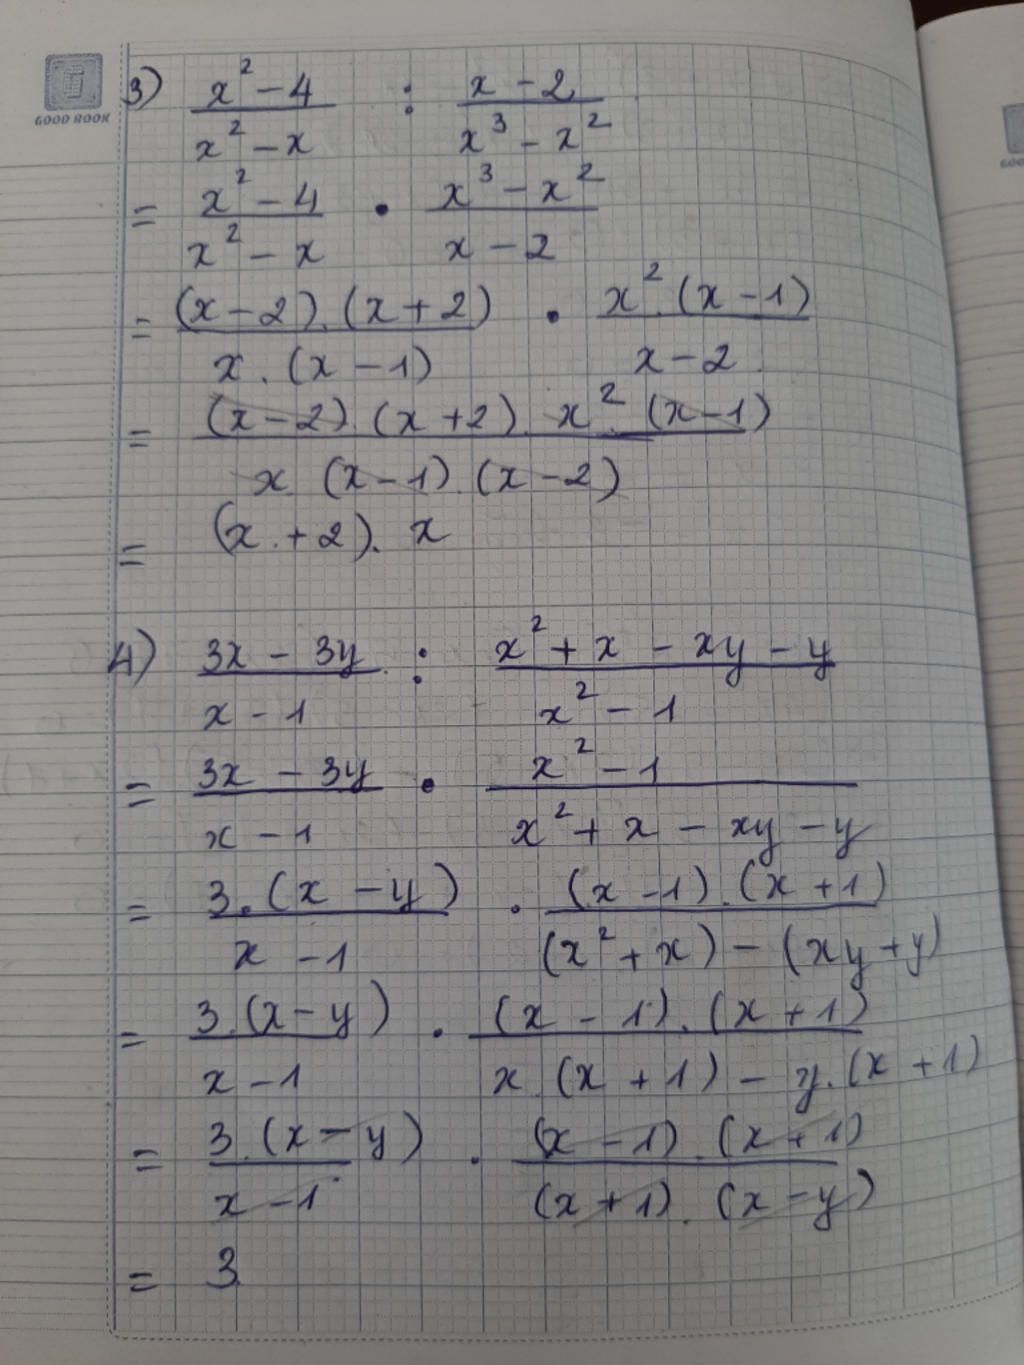 GOOD BOOK
3) (x² - 4)/(x² - x) : (x - 2)/(x³ - x²)
= (x² - 4)/(x² - x) • (x³ - x²)/(x - 2)
= ((x - 2).(x + 2))/(x.(x - 1)) • (x².(x - 1))/(x - 2)
= ((x - 2).(x + 2).x².(x - 1))/(x.(x - 1).(x - 2))
= (x + 2).x
4) (3x - 3y)/(x - 1) : (x² + x - xy - y)/(x² - 1)
= (3x - 3y)/(x - 1) • (x² - 1)/(x² + x - xy - y)
= (3.(x - y))/(x - 1) . ((x - 1).(x + 1))/((x² + x) - (xy + y))
= (3.(x - y))/(x - 1) . ((x - 1).(x + 1))/(x.(x + 1) - y.(x + 1))
= (3.(x - y))/(x - 1) . ((x - 1).(x + 1))/((x + 1).(x - y))
= 3